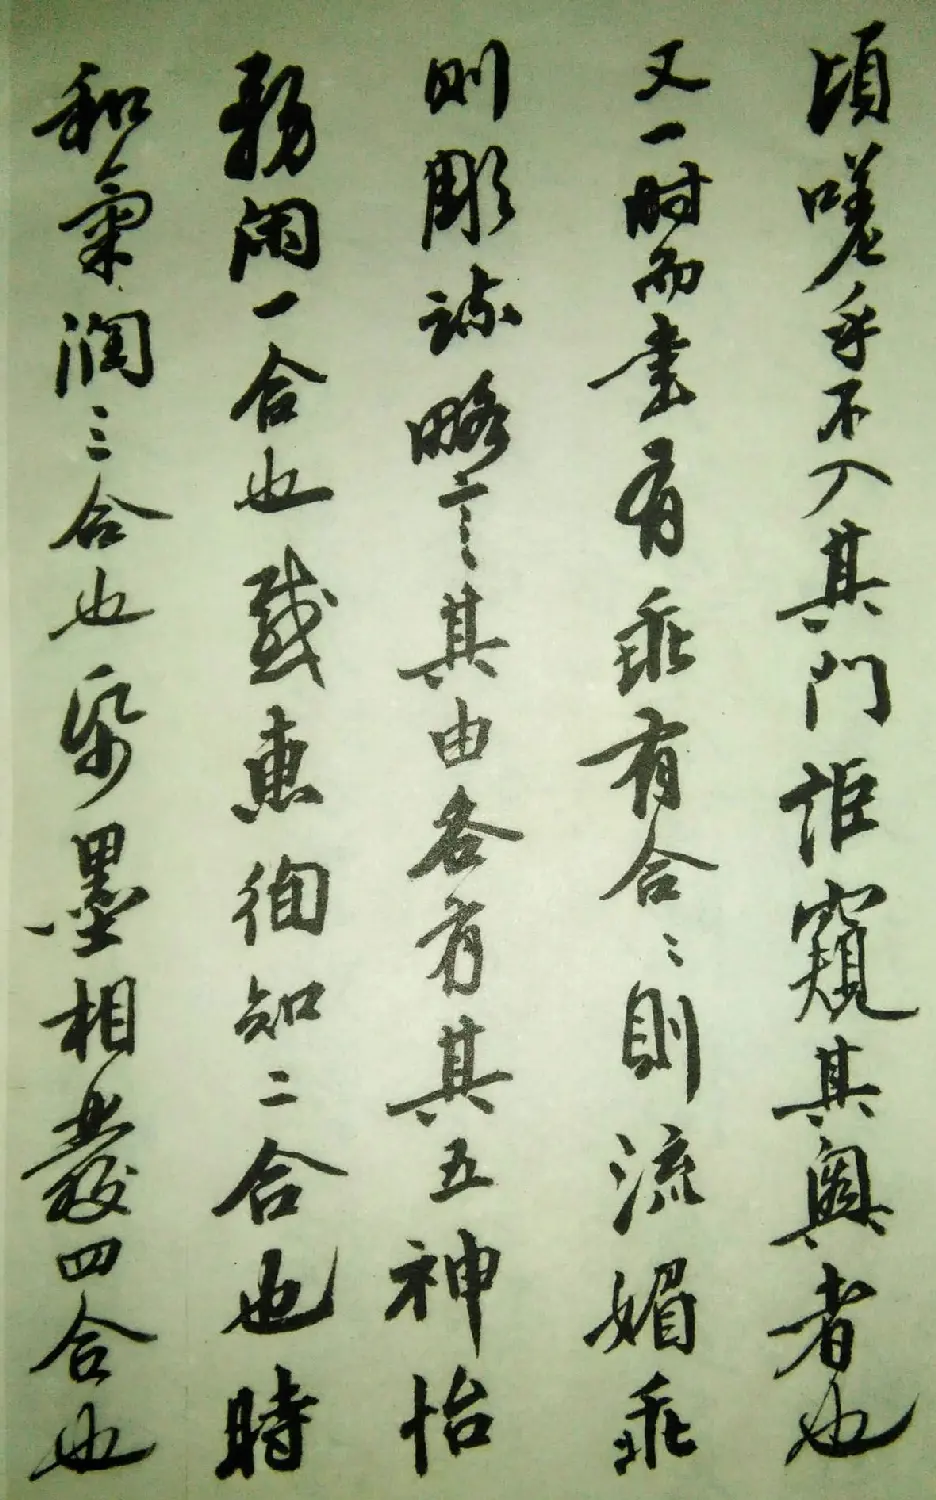 頃嗟乎不入其門詎窺其奧者也
又一時而書有乖有合〻則流媚乖
則彫疏略言其由各有其五神怡
務閑一合也感惠徇知二合也時
和氣潤三合也紙墨相發四合也